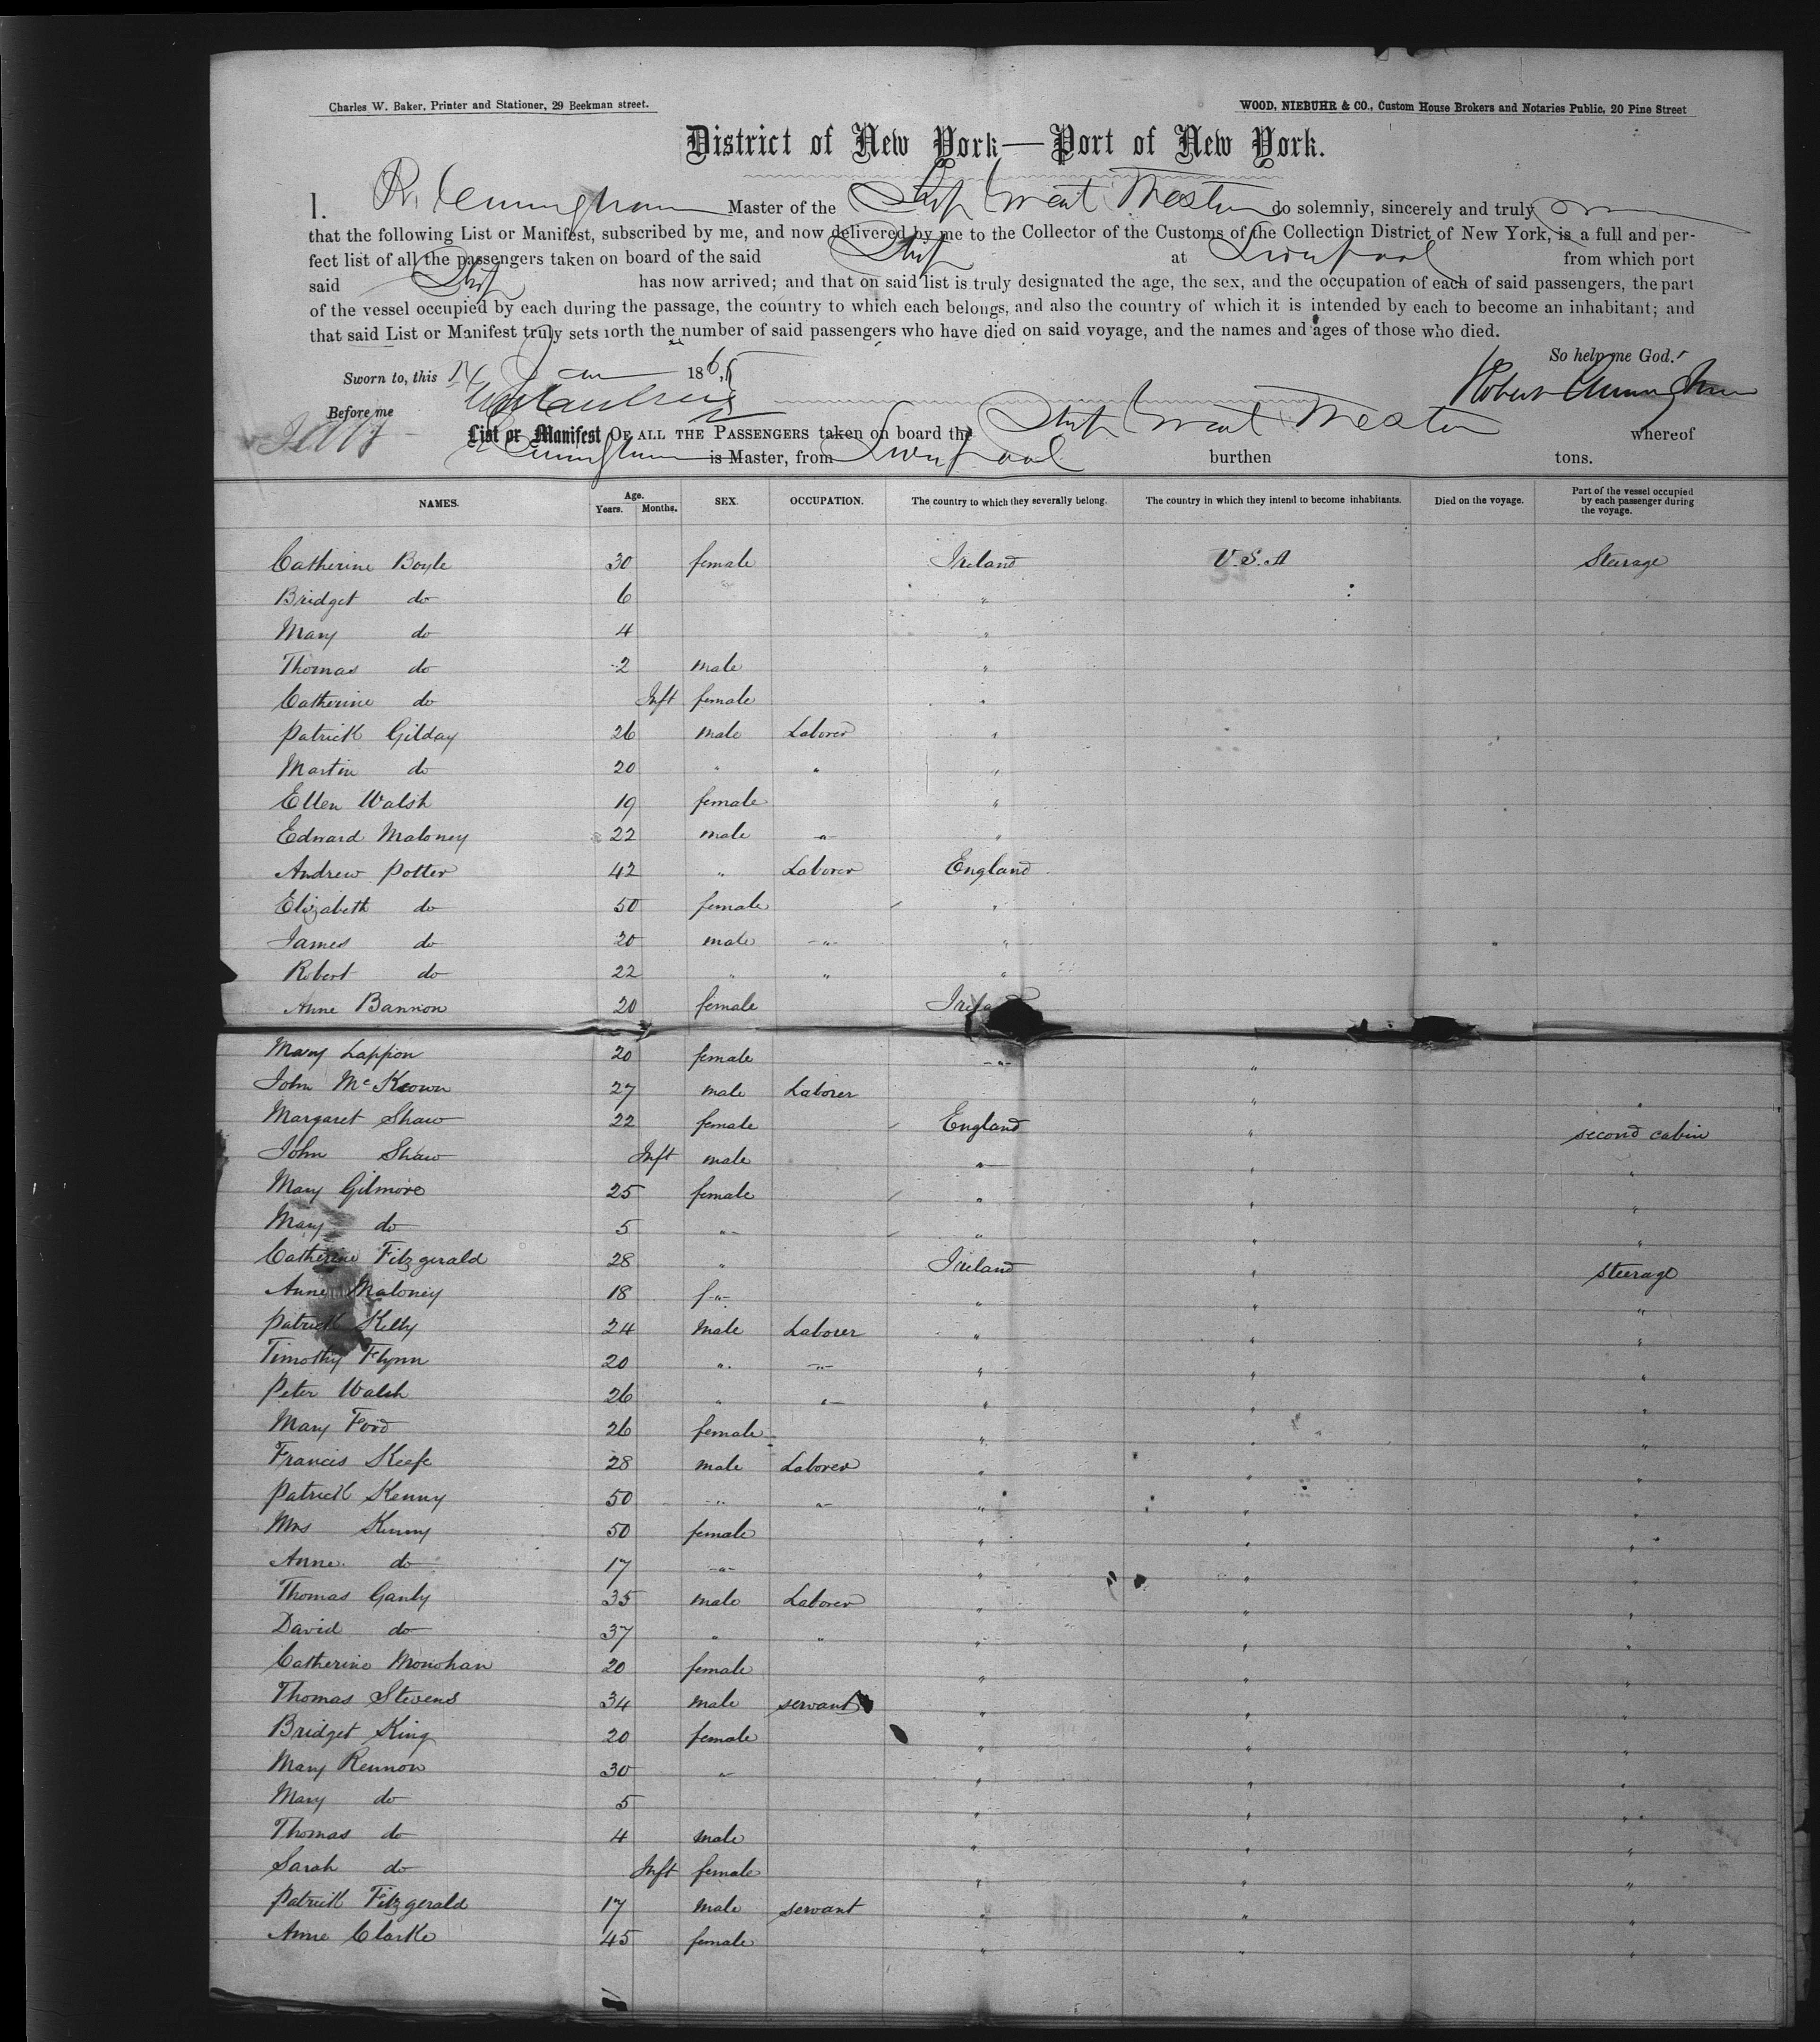 Charles W. Baker, Printer and Stationer, 29 Beekman street.
WOOD, NIEBUHR & CO., Custom House Brokers and Notaries Public, 20 Pine Street
District of New York—Port of New York.
I. R. Cunningham Master of the Ship Great Western do solemnly, sincerely and truly
that the following List or Manifest, subscribed by me, and now delivered by me to the Collector of the Customs of the Collection District of New York, is a full and per-
fect list of all the passengers taken on board of the said Ship at Liverpool from which port
said Ship has now arrived; and that on said list is truly designated the age, the sex, and the occupation of each of said passengers, the part
of the vessel occupied by each during the passage, the country to which each belongs, and also the country of which it is intended by each to become an inhabitant; and
that said List or Manifest truly sets forth the number of said passengers who have died on said voyage, and the names and ages of those who died.
So help me God.
Sworn to, this Jan 1865 Robert Cunningham
Before me
List or Manifest OF ALL THE PASSENGERS taken on board the Ship Great Western whereof
R Cunningham is Master, from Liverpool burthen tons.
NAMES. Age. Years. Months. SEX. OCCUPATION. The country to which they severally belong. The country in which they intend to become inhabitants. Died on the voyage. Part of the vessel occupied by each passenger during the voyage.
Catherine Boyle 30 female Ireland U.S.A Steerage
Bridget do 6 "
Mary do 4 "
Thomas do 2 male "
Catherine do Inft female "
Patrick Gilday 26 male Laborer "
Martin do 20 " " "
Ellen Walsh 19 female "
Edward Maloney 22 male " "
Andrew Potter 42 " Laborer England
Elizabeth do 50 female "
James do 20 male " "
Robert do 22 " " "
Anne Bannon 20 female Ireland
Mary Lappion 20 female " "
John McKeown 27 male Laborer " "
Margaret Shaw 22 female England " second cabin
John Shaw Inft male " " "
Mary Gilmore 25 female " " "
Mary do 5 " " " "
Catherine Fitzgerald 28 " Ireland " steerage
Anne Maloney 18 f " " " "
Patrick Kelly 24 male Laborer " " "
Timothy Flynn 20 " " " " "
Peter Walsh 26 " " " " "
Mary Ford 26 female " " "
Francis Keefe 28 male Laborer " " "
Patrick Kenny 50 " " " " "
Mrs Kenny 50 female " " "
Anne do 17 " " " "
Thomas Ganly 35 male Laborer " " "
David do 37 " " " " "
Catherine Monohan 20 female " " "
Thomas Stevens 34 male servant " " "
Bridget King 20 female " " "
Mary Rennon 30 " " " "
Mary do 5 " " "
Thomas do 4 male " " "
Sarah do Inft female " " "
Patrick Fitzgerald 17 male servant " " "
Anne Clarke 45 female " " "